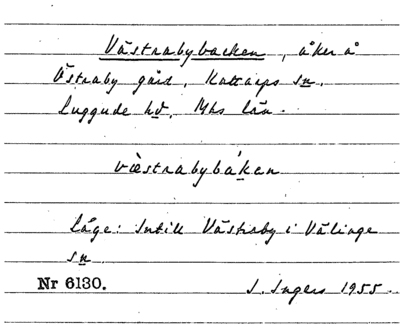 Västrabybacken, åker å
Östraby gård, Kattarps sn,
Luggude hd, Mhs län.
vèstrabybáken
Läge: Intill Västraby i Välinge
sn
Nr 6130.
I. Ingers 1955